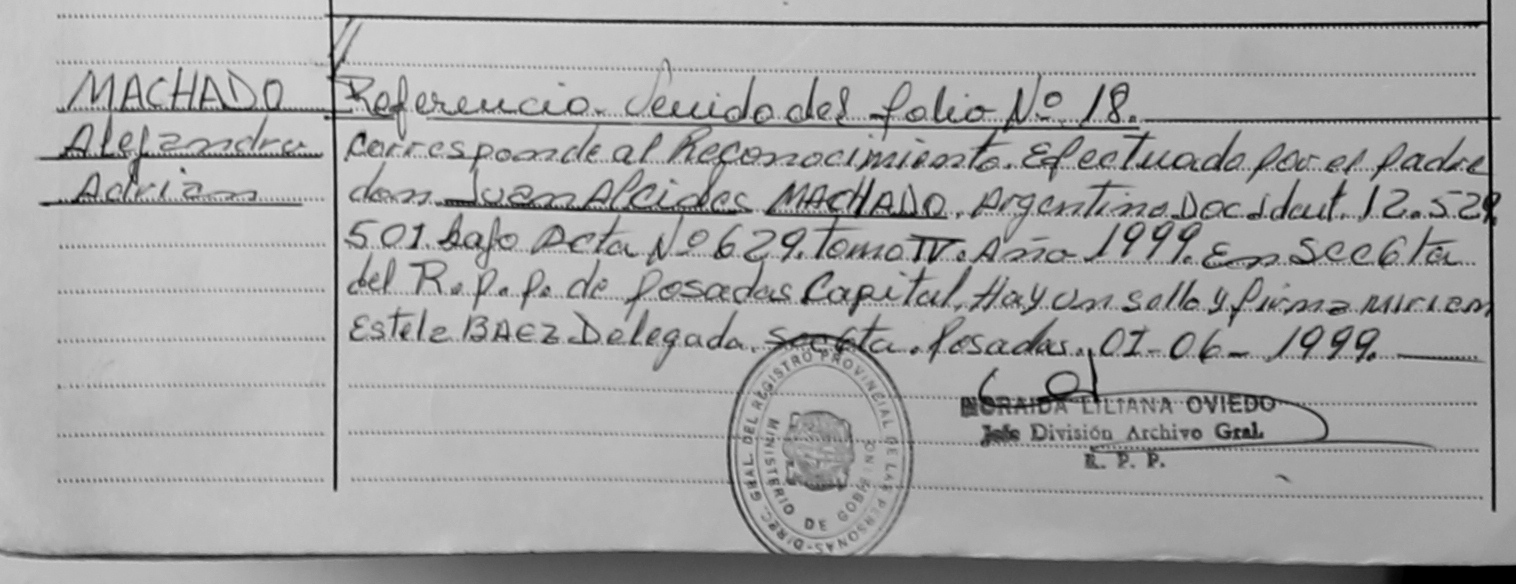 MACHADO
Alejandro
Adrian
Referencia. Venido del folio Nº 18.
Corresponde al Reconocimiento. Efectuado por el padre
don Juan Alcides MACHADO. Argentino Doc Ident. 12.529.
501 bajo Acta Nº 629. Tomo IV. Año 1999. En Secc 6ta
del R.p.p. de Posadas Capital. Hay un sello y firma Miriam
Estela BAEZ Delegada. Secc 6ta. Posadas, 01-06-1999.
DIREC. GRAL. DEL REGISTRO PROVINCIAL DE LAS PERSONAS
MINISTERIO DE GOBIERNO
NORAIDA LILIANA OVIEDO
Jefe División Archivo Gral.
R. P. P.